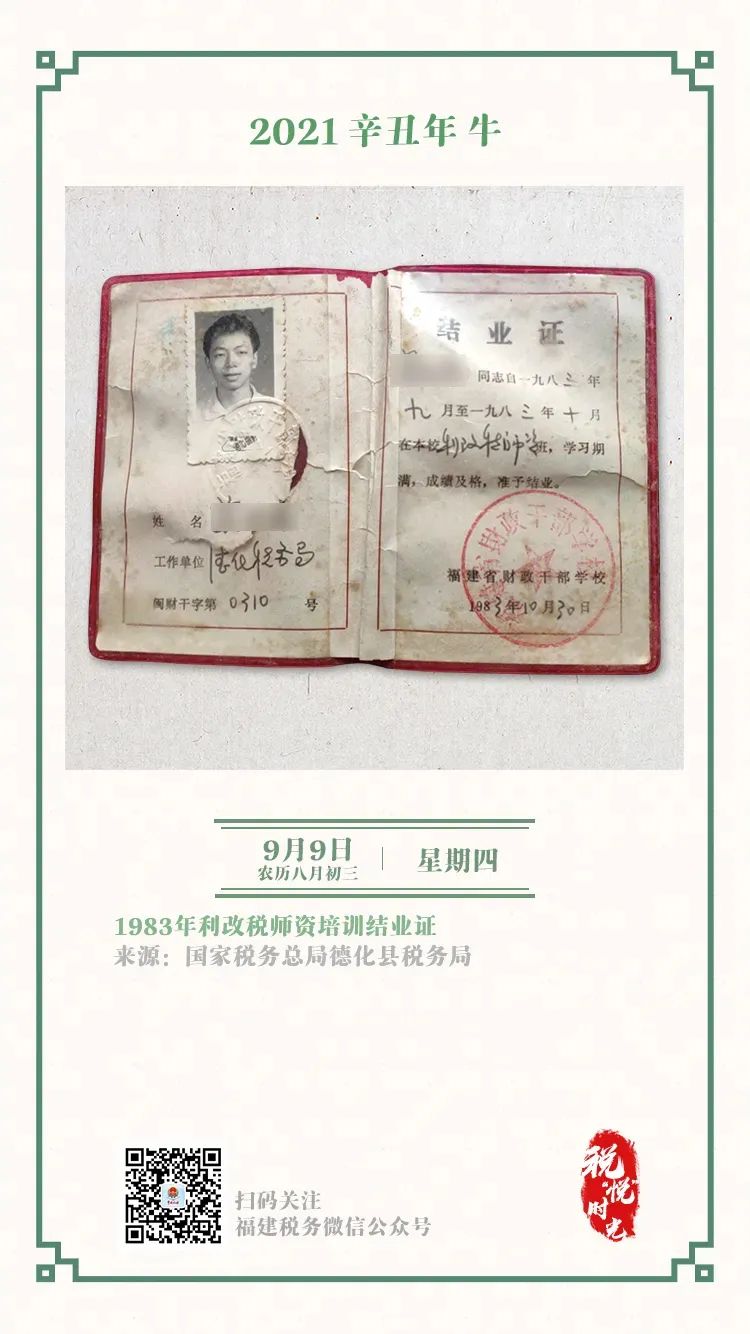 2021 辛丑年 牛
姓 名
工作单位 德化税务局
闽财干字第 0310 号
结业证
同志自一九八三年
九月至一九八三年十月
在本校利改税师资班，学习期
满，成绩及格，准予结业。
福建省财政干部学校
1983年10月30日
福建省财政干部学校
9月9日
农历八月初三
星期四
1983年利改税师资培训结业证
来源：国家税务总局德化县税务局
扫码关注
福建税务微信公众号
税
“悦”
时
光